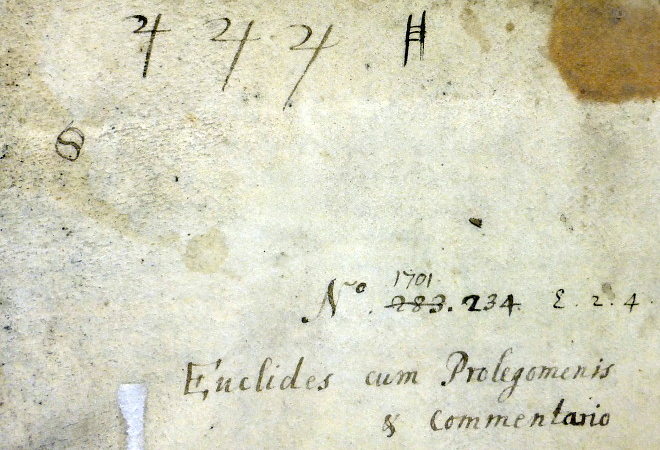 1701.
Nº. 283. 234. E. 2. 4.
Euclides cum Prolegomenis
& Commentario